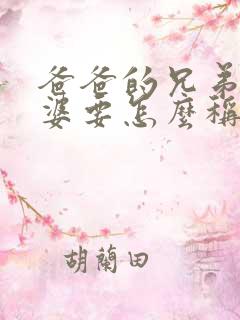 爸爸的兄弟
婆要怎麼稱
胡蘭田